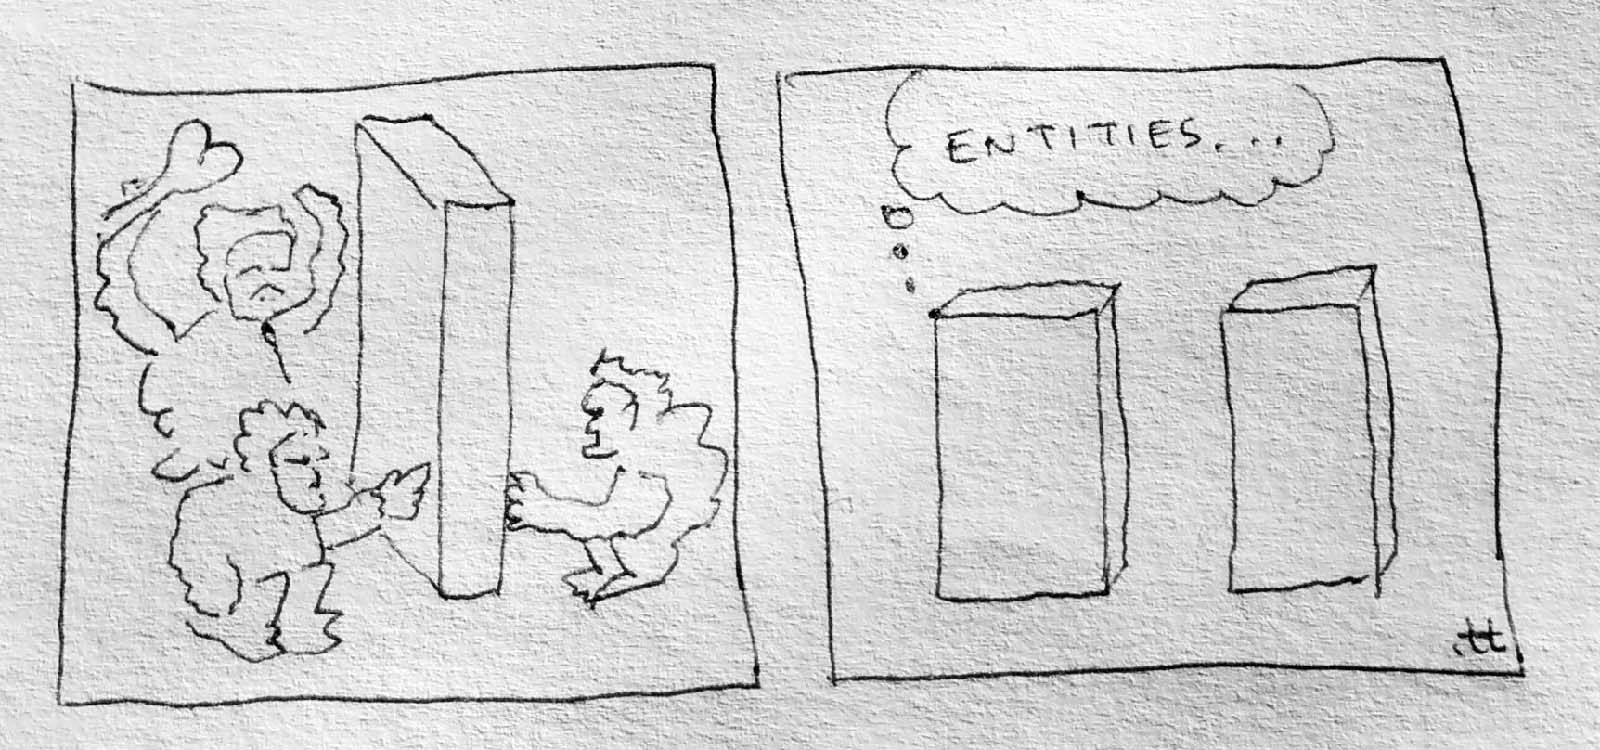 ENTITIES...
.tt